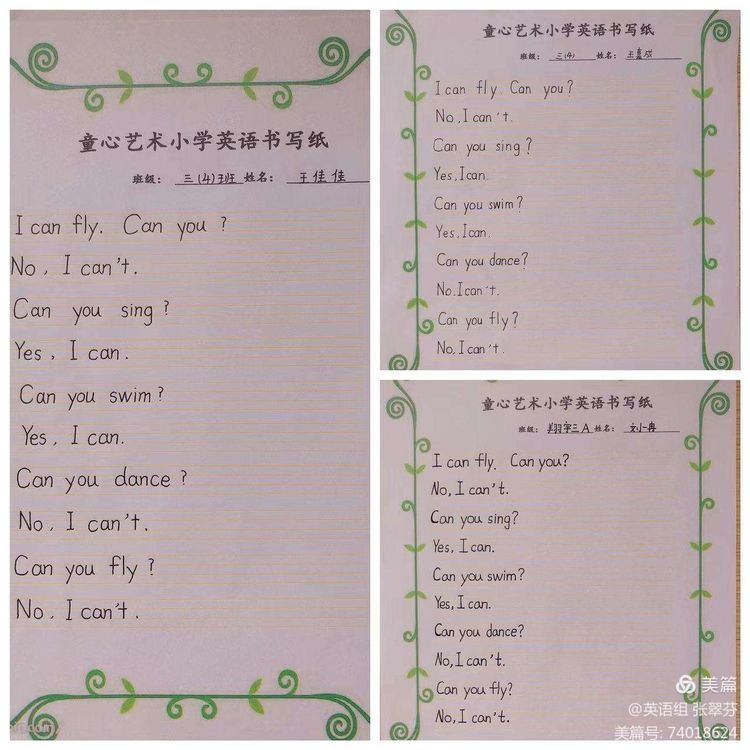 童心艺术小学英语书写纸
班级: 三(4)班 姓名: 于佳佳
I can fly. Can you ?
No, I can't.
Can you sing ?
Yes, I can.
Can you swim ?
Yes, I can.
Can you dance ?
No, I can't.
Can you fly ?
No, I can't.
童心艺术小学英语书写纸
班级: 三(4) 姓名:
I can fly. Can you?
No, I can't.
Can you sing?
Yes, I can.
Can you swim?
Yes, I can.
Can you dance?
No. I can't.
Can you fly?
No, I can't.
童心艺术小学英语书写纸
班级: 翔宇三A 姓名: 刘一冉
I can fly. Can you?
No, I can't.
Can you sing?
Yes, I can.
Can you swim?
Yes, I can.
Can you dance?
No, I can't.
Can you fly?
No, I can't.
美篇
@英语组 张翠芬
美篇号: 74018624